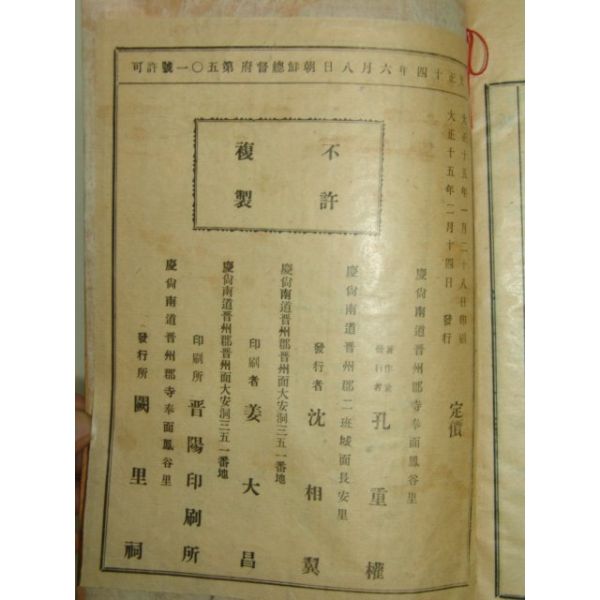 大正十四年六月八日朝鮮總督府第五〇一號許可
不許
複製
大正十五年一月二十八日印刷
大正十五年二月十四日 發行
定價
慶尙南道晋州郡寺奉面鳳谷里
著作兼
發行者 孔重權
慶尙南道晋州郡二班城面長安里
發行者 沈相翼
慶尙南道晋州郡晋州面大安洞三五一番地
印刷者 姜大昌
慶尙南道晋州郡晋州面大安洞三五一番地
印刷所 晋陽印刷所
慶尙南道晋州郡寺奉面鳳谷里
發行所 闕里祠